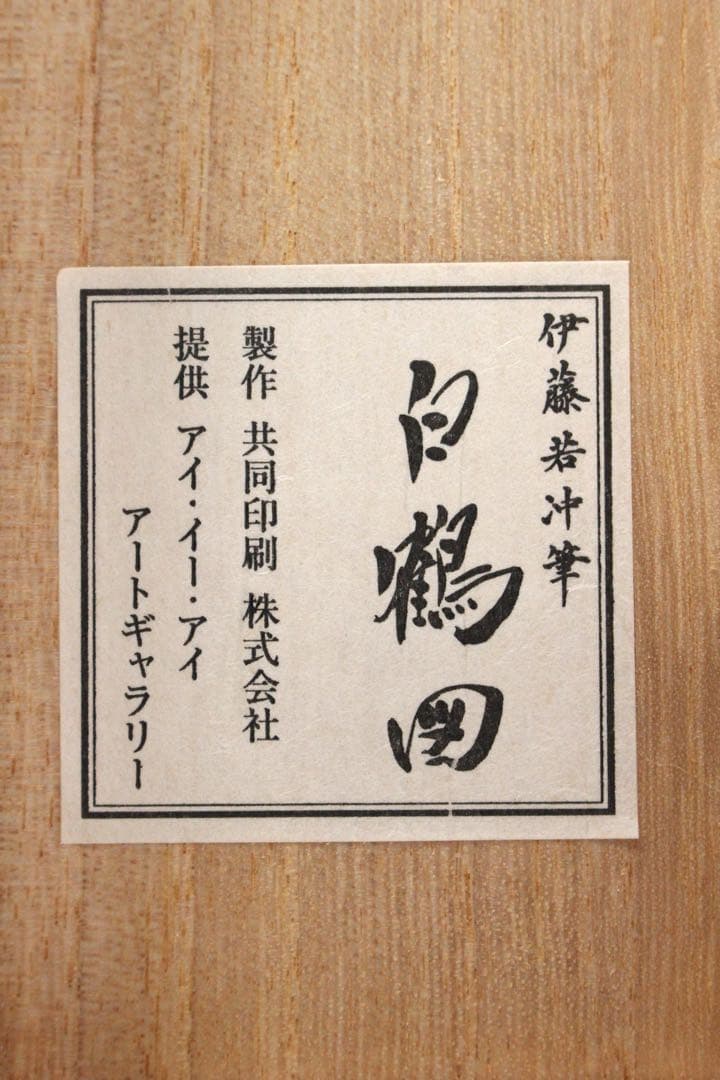 伊藤若冲筆
白鶴図
製作 共同印刷 株式会社
提供 アイ・イー・アイ
アートギャラリー